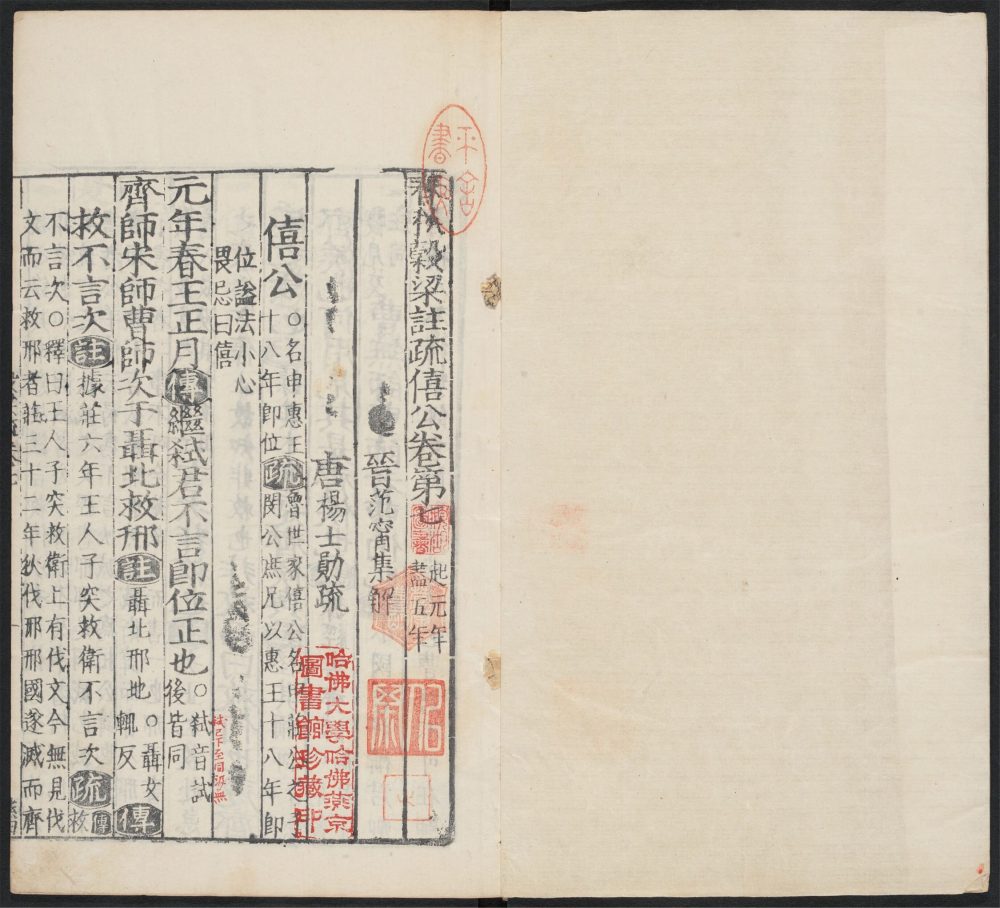 春秋穀梁註疏僖公卷第七
起元年
盡五年
晉范甯集解
唐楊士勛疏
僖公
○名申惠王
十八年即位
疏
魯世家僖公名申莊公之子
閔公庶兄以惠王十八年即
位謚法小心
畏忌曰僖
元年春王正月傳繼弒君不言即位正也
○弒音試
後皆同
弒已下至同混無
齊師宋師曹師次于聶北救邢註
聶北邢地○聶女
輒反
傳
救不言次註據莊六年王人子突救衛不言次疏
傳
救
不言次○釋曰王人子突救衛上有伐文今無見伐
文而云救邢者莊三十二年狄伐邢邢國遂滅而齊
哈佛大學哈佛燕京
圖書館珍藏印